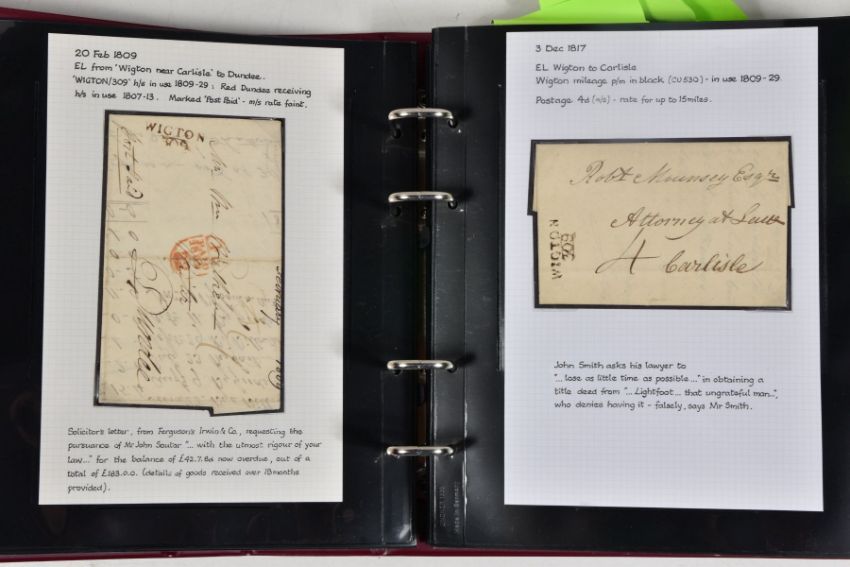 20 Feb 1809
EL from 'Wigton near Carlisle' to Dundee.
'WIGTON/309' h/s in use 1809-29: Red Dundee receiving
h/s in use 1807-13. Marked 'Post Paid' - m/s rate faint.
WIGTON
309
Solicitor's letter, from Ferguson's Irwin & Co, requesting the
pursuance of Mr John Soutar "... with the utmost rigour of your
law..." for the balance of £42.7.6d now overdue, out of a
total of £183.0.0. (details of goods received over 18 months
provided).
3 Dec 1817
EL Wigton to Carlisle
Wigton mileage p/m in black (CU530) - in use 1809-29.
Postage 4d (m/s) - rate for up to 15 miles.
Robt Mounsey Esqre
Attorney at Law
4 Carlisle
WIGTON
309
John Smith asks his lawyer to
"... lose as little time as possible..." in obtaining a
title deed from "... Lightfoot... that ungrateful man...",
who denies having it - falsely, says Mr Smith.
Made in Germany